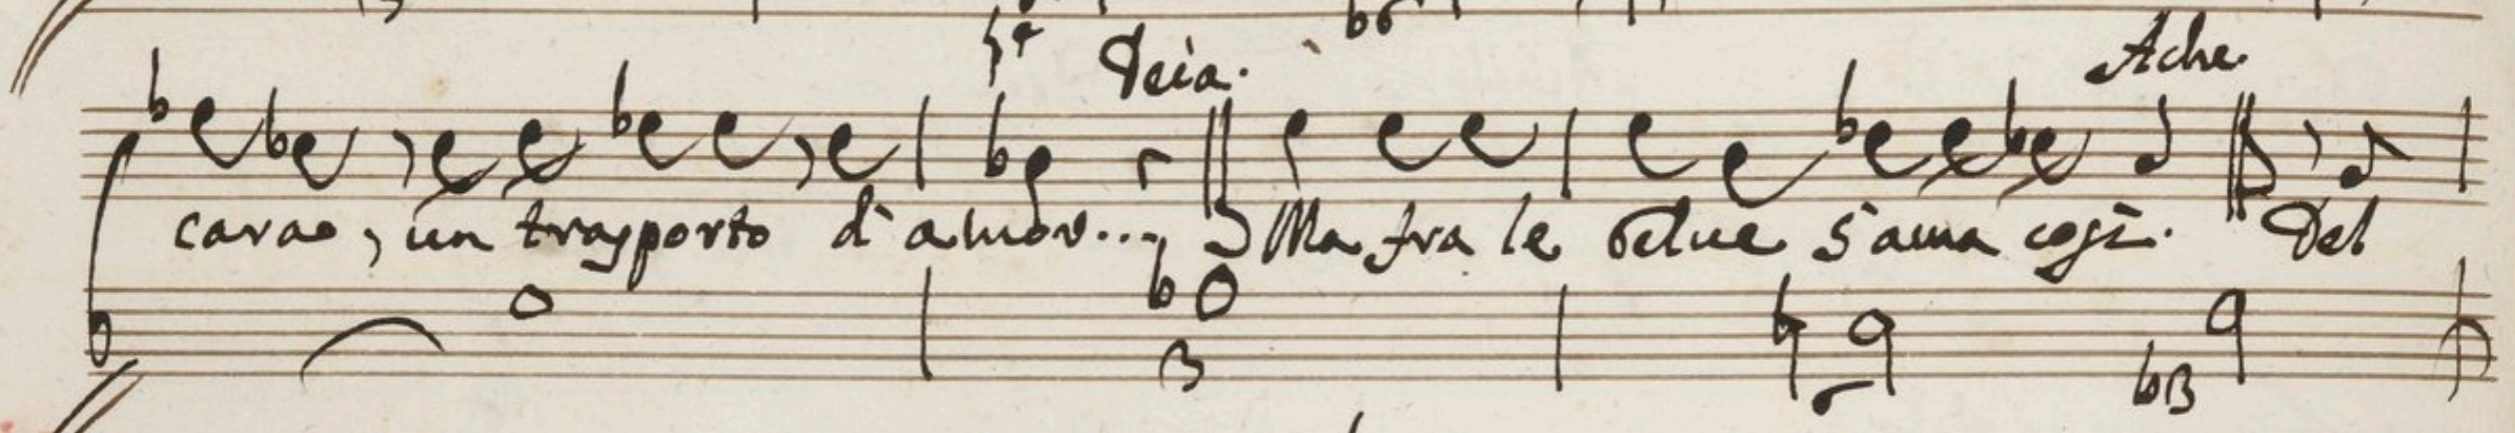 Deia. Ache.
carao, un trasporto d'amor... Ma fra le selve s'ama così. Del